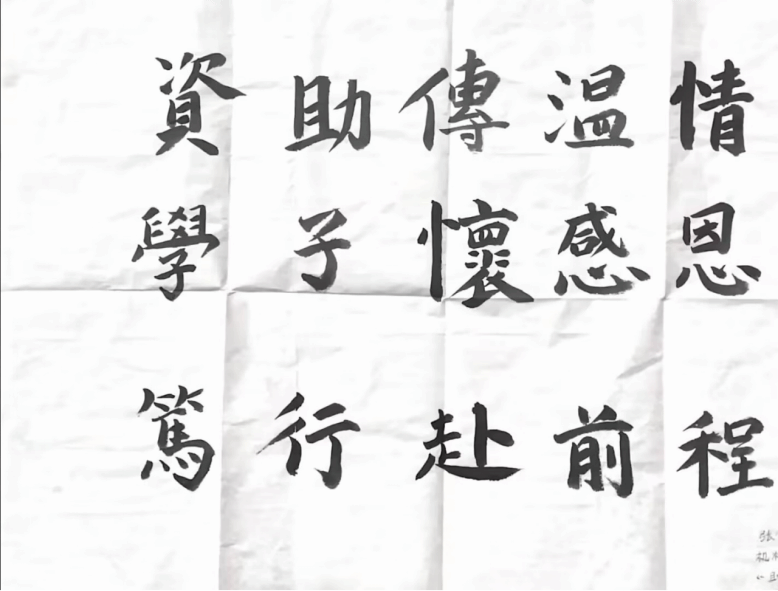 資助傳温情
學子懷感恩
篤行赴前程
張
机
助